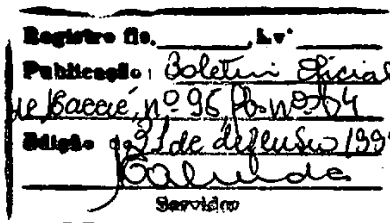 Registro fls. , Lvº
Publicação: Boletim Oficial
nº 96 fls nº 64
Edição de 31 de dezembro 199
Servidor